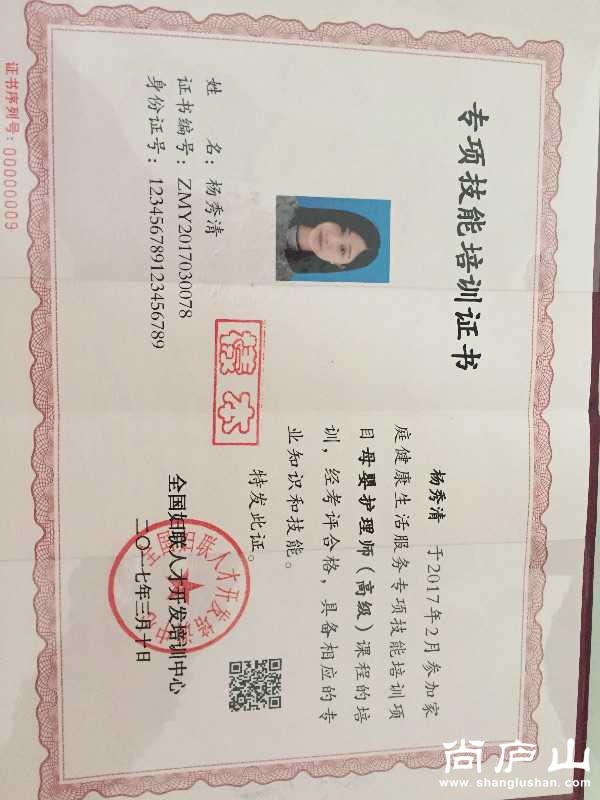 专项技能培训证书
姓 名：杨秀清
证书编号：ZMY2017030078
身份证号：123456789123456789
样本
杨秀清 于2017年2月参加家
庭健康生活服务专项技能培训项
目母婴护理师（高级）课程的培
训，经考评合格，具备相应的专
业知识和技能。
特发此证。
全国妇联人才开发培训中心
二〇一七年三月十日
证书序列号：00000009
尚庐山
www.shanglushan.com